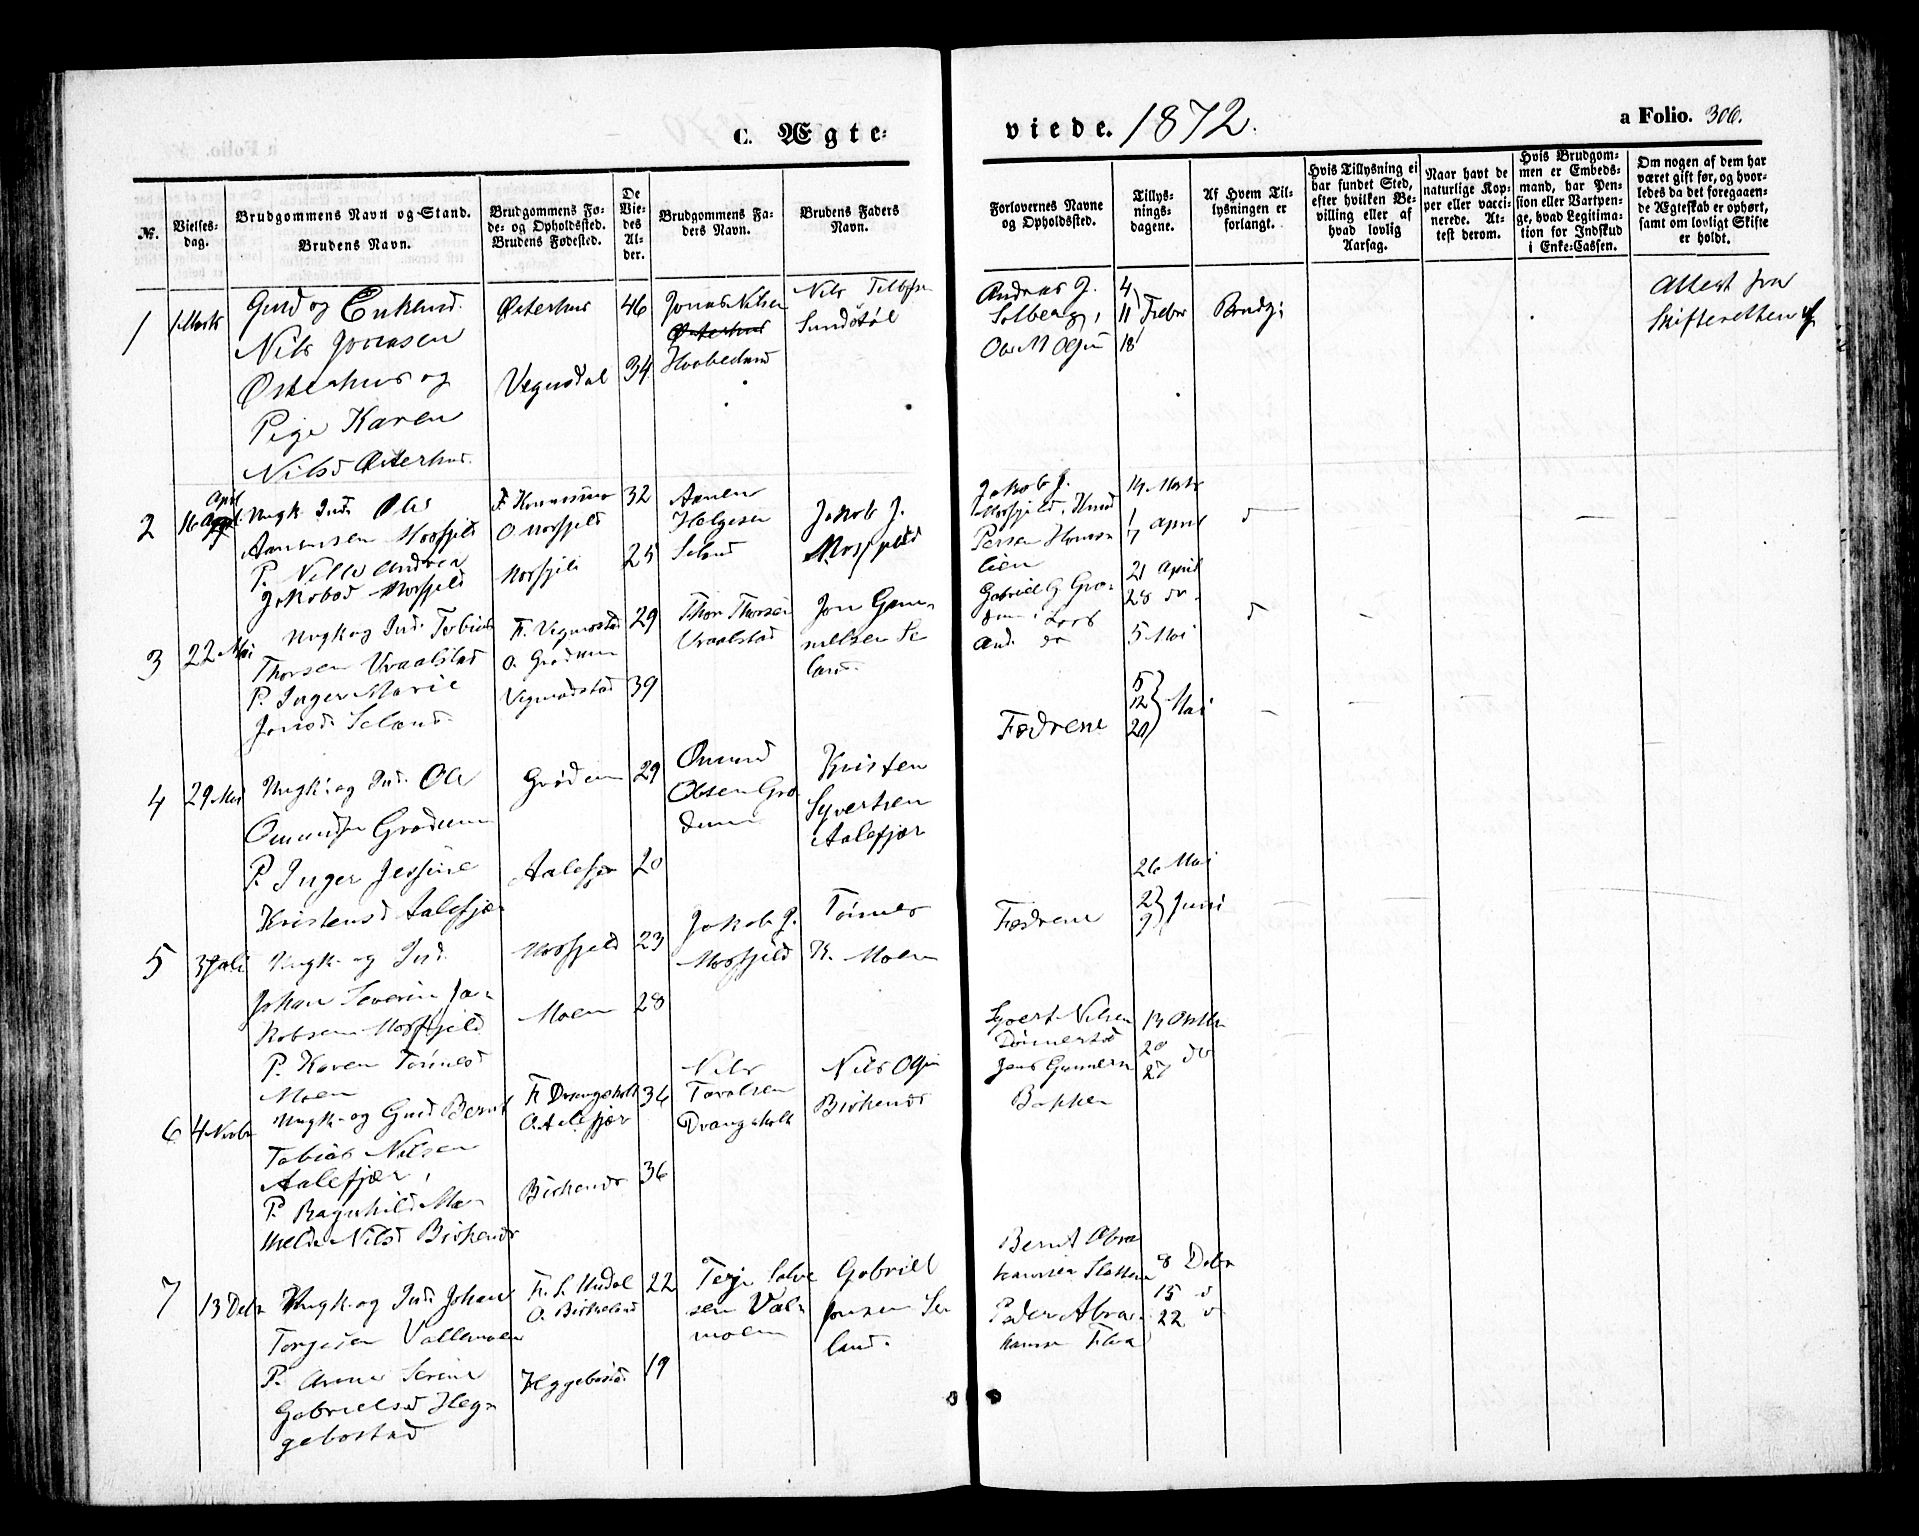 C. Ægte-
viede. 1872.
a Folio. 306.
No.
Vielses-
dag.
Brudgommens Navn og Stand.
Brudens Navn.
Brudgommens Fø-
de- og Opholdssted.
Brudens Fødested.
De
Vie-
des
Al-
der.
Brudgommens Fa-
ders Navn.
Brudens Faders
Navn.
Forlovernes Navne
og Opholdssted.
Tillys-
nings-
dagene.
Af Hvem Til-
lysningen er
forlangt.
Hvis Tillysning ei
har fundet Sted,
efter hvilken Be-
villing eller af
hvad lovlig
Aarsag.
Naar havt de
naturlige Kop-
per eller vacci-
nerede. At-
test derom.
Hvis Brudgom-
men er Embeds-
mand, har Pen-
sion eller Vartpen-
ge, hvad Legitima-
tion for Indskud
i Enke-Cassen.
Om nogen af dem har
været gift før, og hvor-
ledes da det foregaaen-
de Ægteskab er ophørt,
samt om lovligt Skifte
er holdt.
1
Gmd og Enkemd.
Nils Jonassen
Østerhus og
Pige Karen
Nilsd Østerhus.
Østerhus
Vegusdal
46
34
Jonas Nilsen
Østerhus
Hovbeland
Nils
Sundstøl
Andreas J.
Solberg,
4
11 Febr
18
Attest fra
Skifteretten
2
16 April
Ungk. Ind. Ole
Aanensen Mosfjeld
P. Nille Andrea
Jakobsd Mosfjeld
O Mosfjeld
Mosfjeld
32
25
Aanen
Helgesen
Seland
Jakob J.
Mosfjeld
Jakob J.
Mosfjeld, Knud
14 Marts
1
7 April
d
3
22 Mai
Ungk og Ind. Tobias
Thorsen Uraalstad
P. Inger Marie
Jonsd. Seland
F. Vegusdal
O. Grødum
29
39
Thor Thorsen
Uraalstad
Jon Gun-
nelsen Se
land
Gabriel G Gro-
21 April
28 do
5 Mai
d
4
29 Mai
Ungk. og Ind. Ole
Omundsen Grødum
P. Inger Jessine
Kristensd Aalefjær
Grødum
Aalefjær
29
20
Omund
Olsen Grø
dum
Kristen
Syvertsen
Aalefjær
Fædrene
5
12
20
Mai
5
3 Juli
Ungk. og Ind.
Johan Severin Ja-
kobsen Mosfjeld
P. Karen Tønnesd
Moen
Mosfjeld
Moen
23
28
Jakob J.
Mosfjeld
Tønnes
K. Moen
Fædrene
26 Mai
2
9
Juni
6
4 Novbr
Ungk. og Gmd Bernt
Tobias Nilsen
Aalefjær,
P. Ragnhild Ma-
thelde Nilsd Birkenes
F. Drangsholt
O. Aalefjær
Birkenes
36
36
Nils
Drangsholt
Nils
Birkenes
Syvert Nilsen
Jens Gunnersen
Bakken
13 Oktbr
20
27
do
7
13 Debr
Ungk. og Ind. Johan
Terjesen Vallemoen
P. Anne Serine
Gabrielsd Heg-
gebostad
O. Birkeland
Heggebostad
22
19
Terje Salve
sen Vale
moen
Gabriel
Jonsen Se
land.
Bernt Abra
hamsen
Peder Abra-
hamsen
8 Debr
15 d
22 d